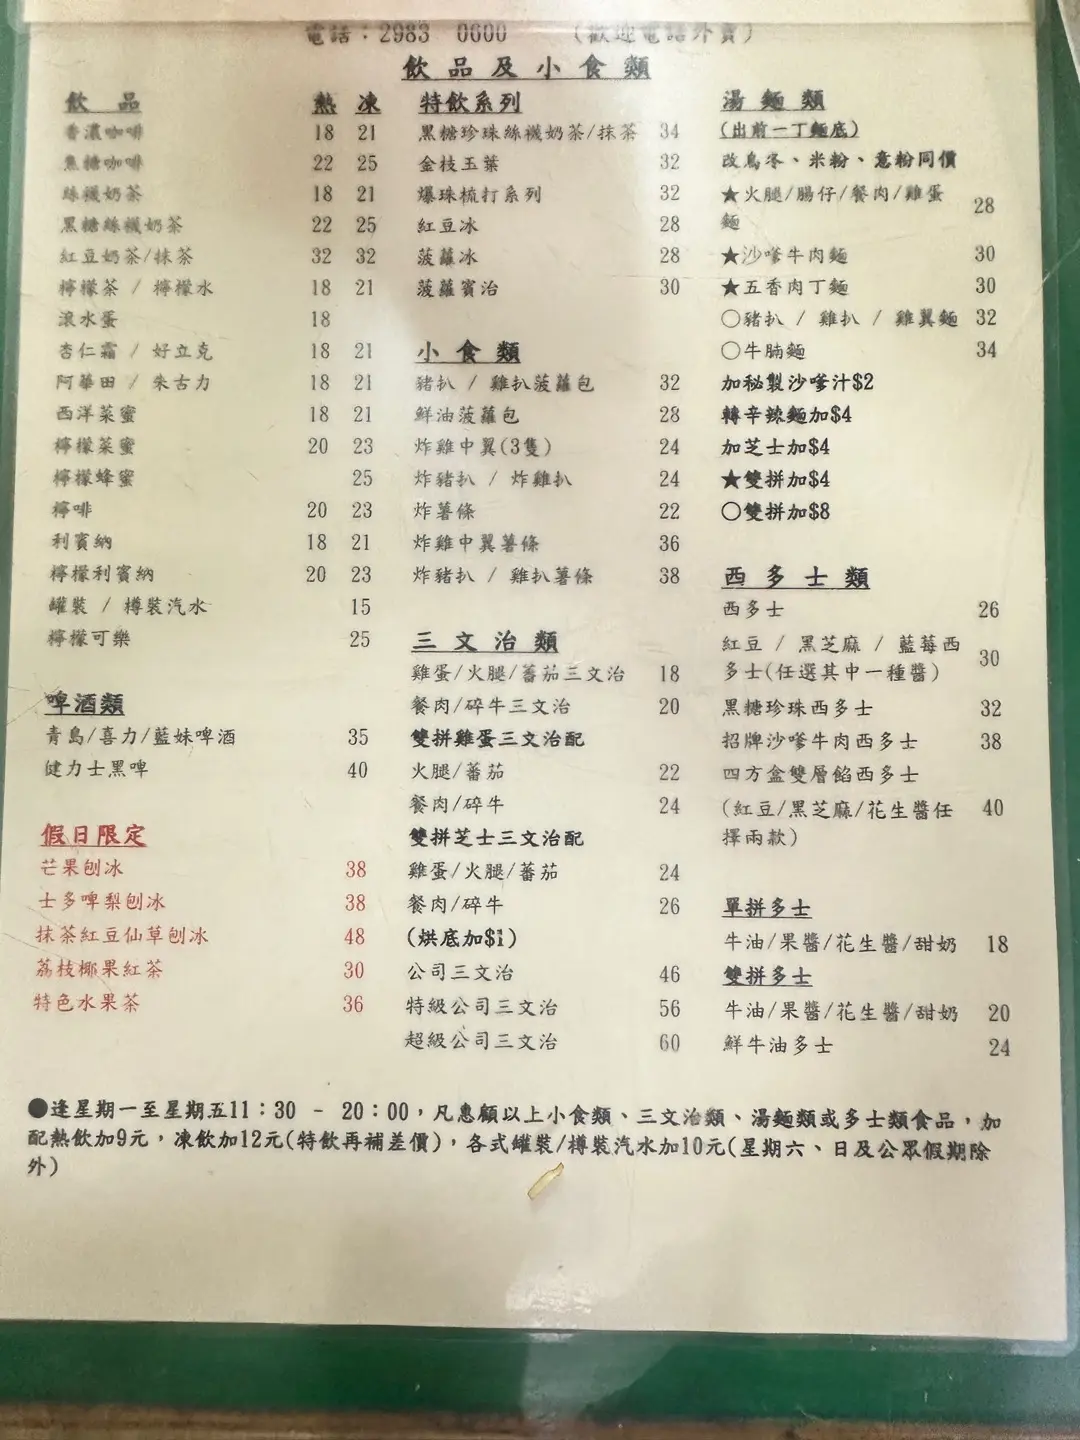 電話：2983 0600 （歡迎電話外賣）
飲品及小食類
飲品 熱 凍
香濃咖啡 18 21
焦糖咖啡 22 25
絲襪奶茶 18 21
黑糖絲襪奶茶 22 25
紅豆奶茶/抹茶 32 32
檸檬茶 / 檸檬水 18 21
滾水蛋 18
杏仁霜 / 好立克 18 21
阿華田 / 朱古力 18 21
西洋菜蜜 18 21
檸檬菜蜜 20 23
檸檬蜂蜜 25
檸啡 20 23
利賓納 18 21
檸檬利賓納 20 23
罐裝 / 樽裝汽水 15
檸檬可樂 25
啤酒類
青島/喜力/藍妹啤酒 35
健力士黑啤 40
假日限定
芒果刨冰 38
士多啤梨刨冰 38
抹茶紅豆仙草刨冰 48
荔枝椰果紅茶 30
特色水果茶 36
特飲系列
黑糖珍珠絲襪奶茶/抹茶 34
金枝玉葉 32
爆珠梳打系列 32
紅豆冰 28
菠蘿冰 28
菠蘿賓治 30
小食類
豬扒 / 雞扒菠蘿包 32
鮮油菠蘿包 28
炸雞中翼(3隻) 24
炸豬扒 / 炸雞扒 24
炸薯條 22
炸雞中翼薯條 36
炸豬扒 / 雞扒薯條 38
三文治類
雞蛋/火腿/蕃茄三文治 18
餐肉/碎牛三文治 20
雙拼雞蛋三文治配
火腿/蕃茄 22
餐肉/碎牛 24
雙拼芝士三文治配
雞蛋/火腿/蕃茄 24
餐肉/碎牛 26
(烘底加$1)
公司三文治 46
特級公司三文治 56
超級公司三文治 60
湯麵類
(出前一丁麵底)
改烏冬、米粉、意粉同價
★火腿/腸仔/餐肉/雞蛋
麵 28
★沙嗲牛肉麵 30
★五香肉丁麵 30
○豬扒 / 雞扒 / 雞翼麵 32
○牛腩麵 34
加秘製沙嗲汁$2
轉辛辣麵加$4
加芝士加$4
★雙拼加$4
○雙拼加$8
西多士類
西多士 26
紅豆 / 黑芝麻 / 藍莓西
多士(任選其中一種醬) 30
黑糖珍珠西多士 32
招牌沙嗲牛肉西多士 38
四方盒雙層餡西多士
(紅豆/黑芝麻/花生醬任 40
擇兩款)
單拼多士
牛油/果醬/花生醬/甜奶 18
雙拼多士
牛油/果醬/花生醬/甜奶 20
鮮牛油多士 24
●逢星期一至星期五11：30 - 20：00，凡惠顧以上小食類、三文治類、湯麵類或多士類食品，加
配熱飲加9元，凍飲加12元(特飲再補差價)，各式罐裝/樽裝汽水加10元(星期六、日及公眾假期除
外)